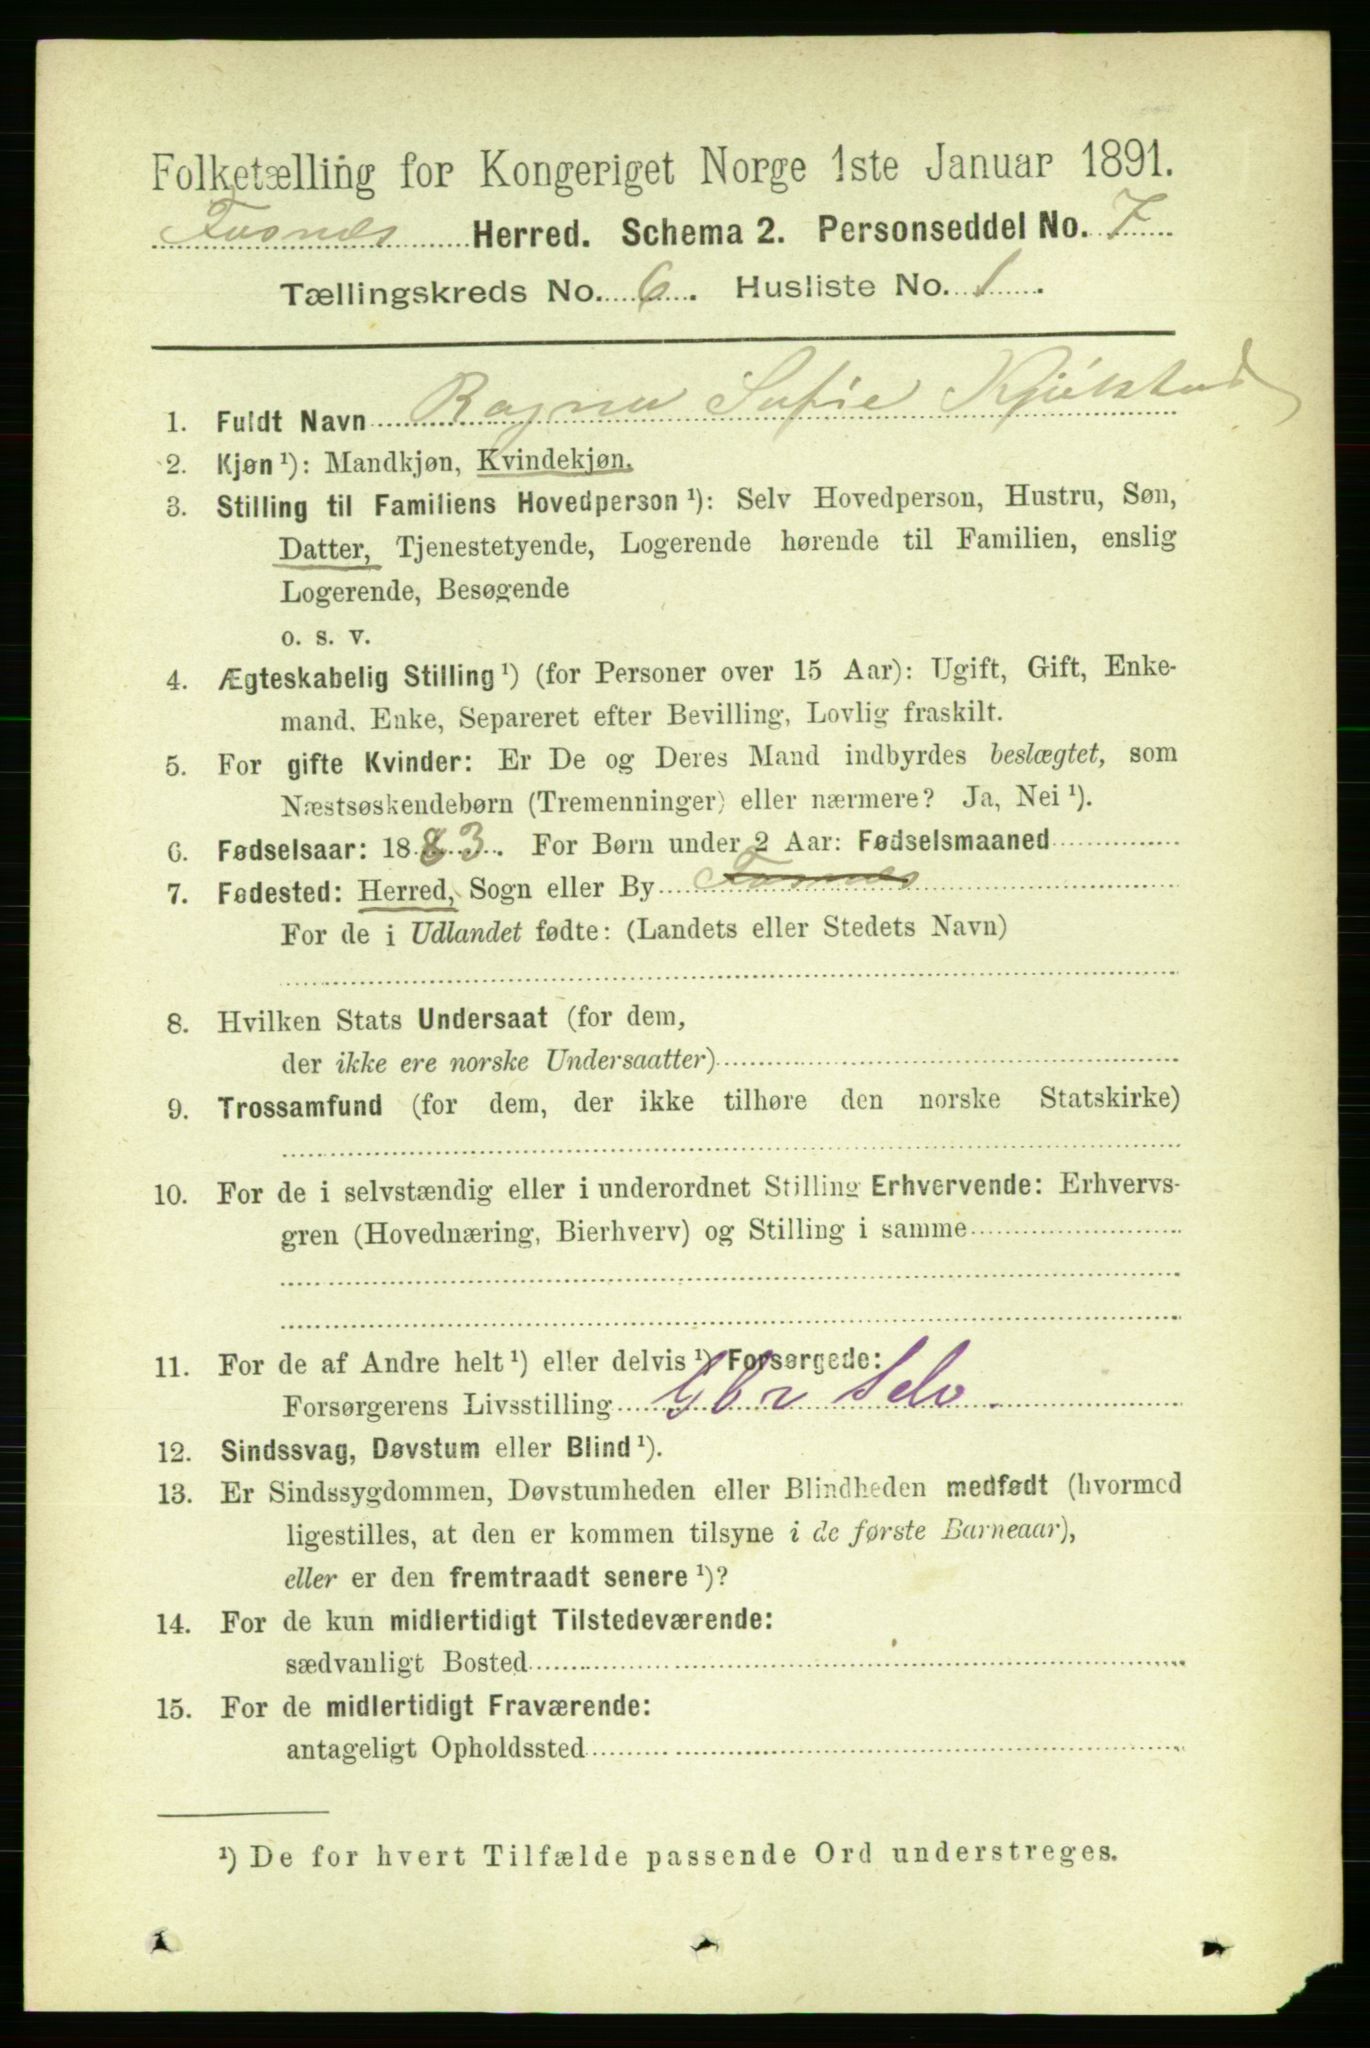 Folketælling for Kongeriget Norge 1ste Januar 1891.
Fosnes Herred. Schema 2. Personseddel No. 7
Tællingskreds No. 6. Husliste No. 1.
1. Fuldt Navn Ragna Sofie Kjølstad
2. Kjøn ¹): Mandkjøn, Kvindekjøn.
3. Stilling til Familiens Hovedperson ¹): Selv Hovedperson, Hustru, Søn,
Datter, Tjenestetyende, Logerende hørende til Familien, enslig
Logerende, Besøgende
o. s. v.
4. Ægteskabelig Stilling ¹) (for Personer over 15 Aar): Ugift, Gift, Enke-
mand, Enke, Separeret efter Bevilling, Lovlig fraskilt.
5. For gifte Kvinder: Er De og Deres Mand indbyrdes beslægtet, som
Næstsøskendebørn (Tremenninger) eller nærmere? Ja, Nei ¹).
6. Fødselsaar: 1883. For Børn under 2 Aar: Fødselsmaaned
7. Fødested: Herred, Sogn eller By Fosnes
For de i Udlandet fødte: (Landets eller Stedets Navn)
8. Hvilken Stats Undersaat (for dem,
der ikke ere norske Undersaatter)
9. Trossamfund (for dem, der ikke tilhøre den norske Statskirke)
10. For de i selvstændig eller i underordnet Stilling Erhvervende: Erhvervs-
gren (Hovednæring, Bierhverv) og Stilling i samme
11. For de af Andre helt ¹) eller delvis ¹) Forsørgede:
Forsørgerens Livsstilling Gbr Selv.
12. Sindssvag, Døvstum eller Blind ¹).
13. Er Sindssygdommen, Døvstumheden eller Blindheden medfødt (hvormed
ligestilles, at den er kommen tilsyne i de første Barneaar),
eller er den fremtraadt senere ¹)?
14. For de kun midlertidigt Tilstedeværende:
sædvanligt Bosted
15. For de midlertidigt Fraværende:
antageligt Opholdssted
¹) De for hvert Tilfælde passende Ord understreges.